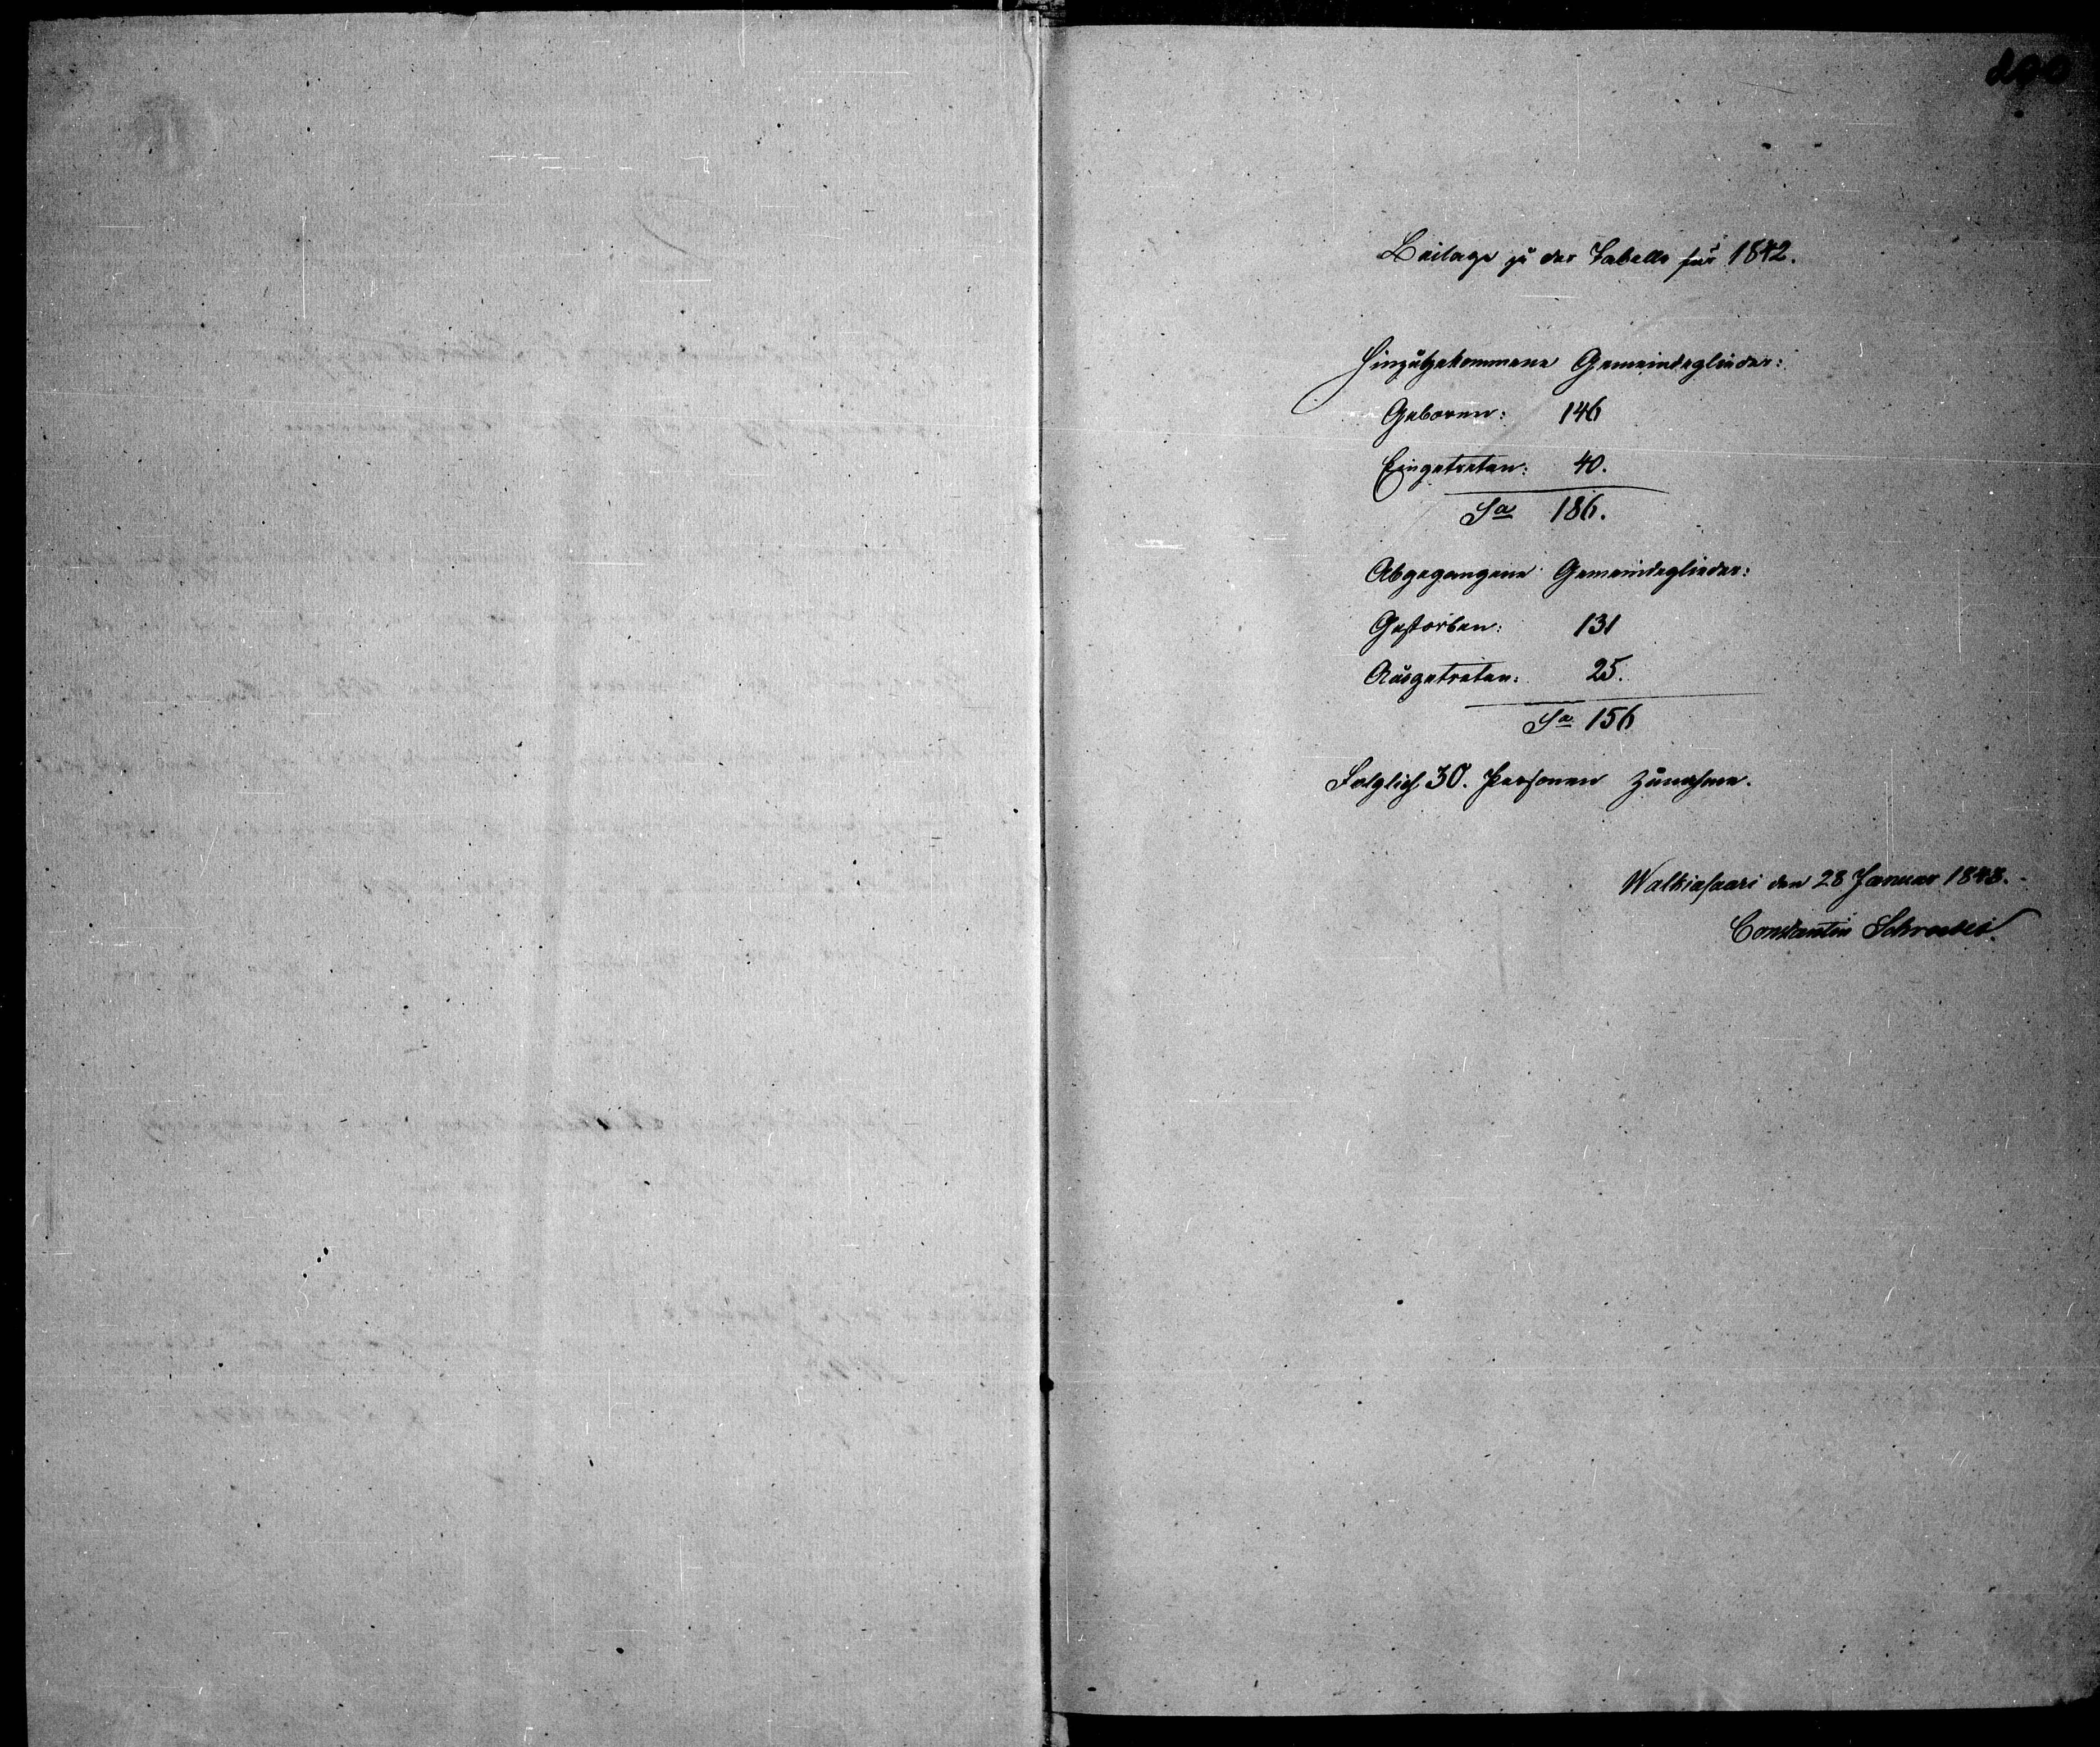 Beilage zu der Tabelle für 1842.
Hinzugekommene Gemeindeglieder:
Geboren: 146
Eingetreten: 40.
Sa 186.
Abgegangene Gemeindeglieder:
Gestorben: 131
Ausgetreten: 25.
Sa 156
Folglich 30. Personen Zunahme.
Walkiasaari den 28 Januar 1843.
Constantin Schroeder